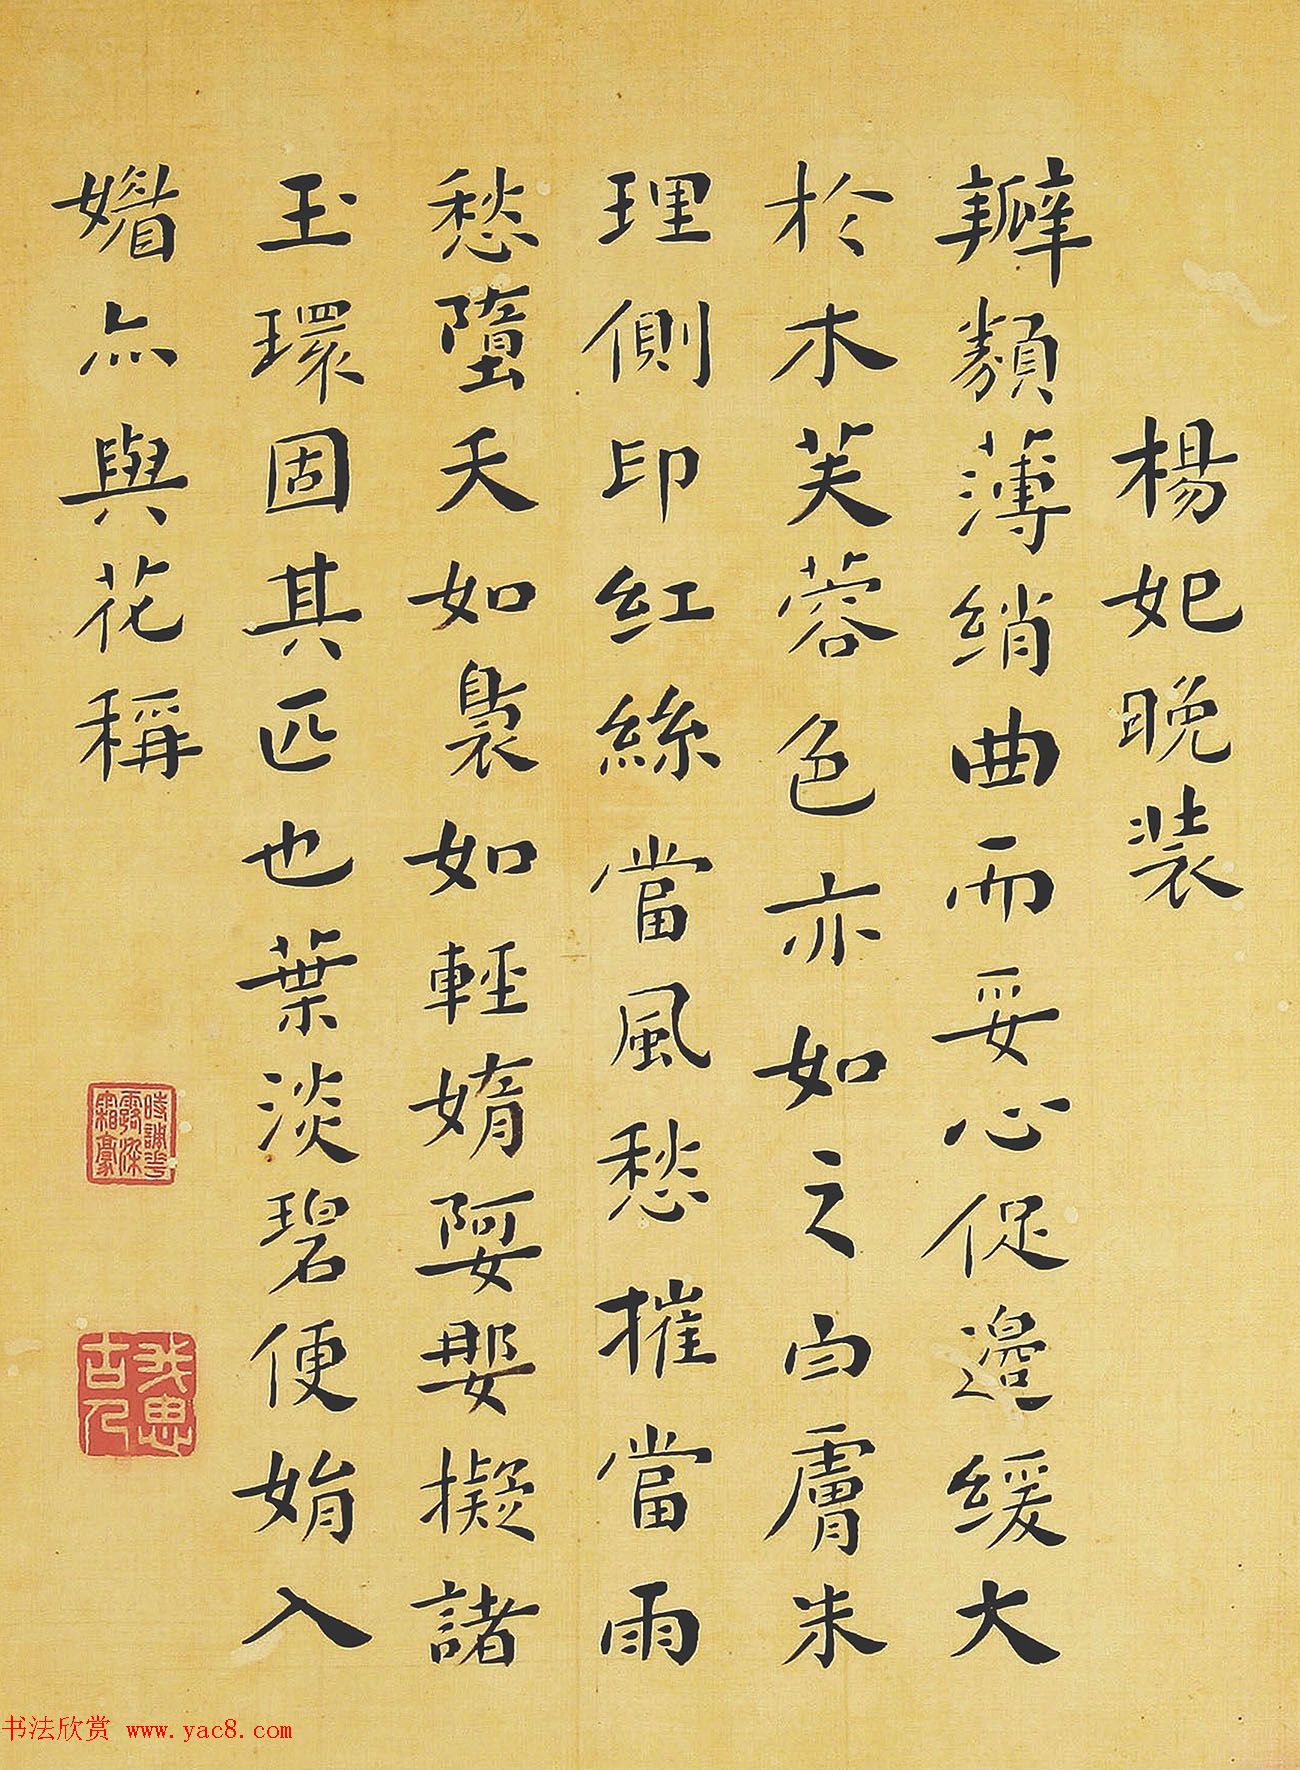 楊妃晚装
瓣類薄綃曲而妥心促邊緩大
於木芙蓉色亦如之肉膚朱
理側印紅絲當風愁摧當雨
愁墮夭如裊如輕媠婐㜷擬諸
玉環固其匹也葉淡碧便娟入
媚亦與花稱
书法欣赏 www.yac8.com